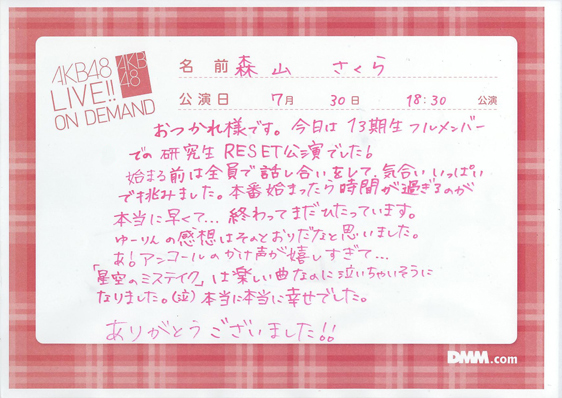 AKB48
LIVE!!
ON DEMAND
AKB
48
名前 森山 さくら
公演日 7月 30日 18:30 公演
おつかれ様です。今日は13期生フルメンバー
での研究生RESET公演でした!
始まる前は全員で話し合いをして、気合いいっぱい
で挑みました。本番始まったら時間が過ぎるのが
本当に早くて…終わってまだひたっています。
ゆーりんの感想はそのとおりだなと思いました。
あ!アンコールのかけ声が嬉しすぎて…
「星空のミステイク」は楽しい曲なのに泣いちゃいそうに
なりました。(泣)本当に本当に幸せでした。
ありがとうございました!!
DMM.com